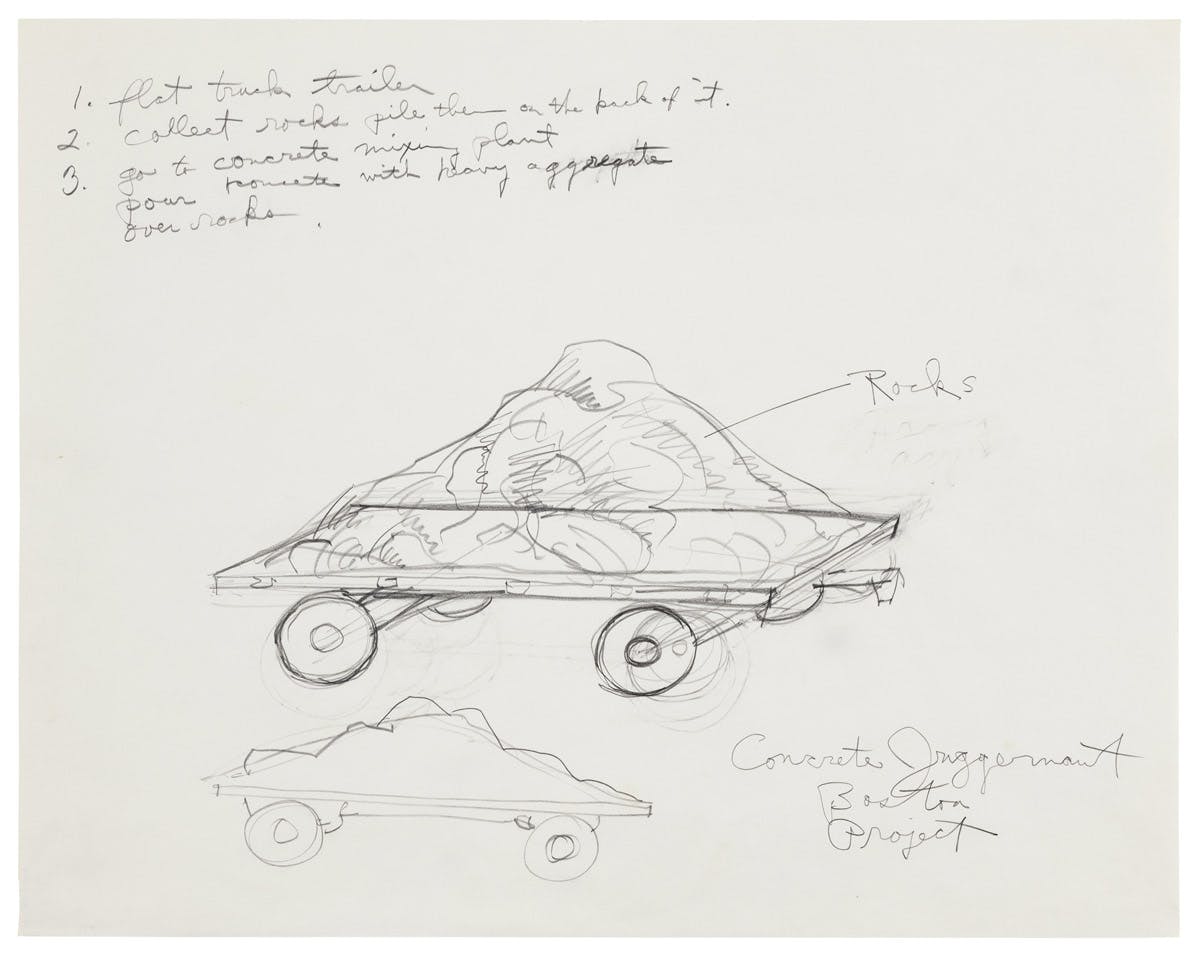 1. flat truck trailer
2. collect rocks pile them on the back of it.
3. go to concrete mixing plant
pour concrete with heavy aggregate
over rocks.
Rocks
Concrete Juggernaut
Boston
Project